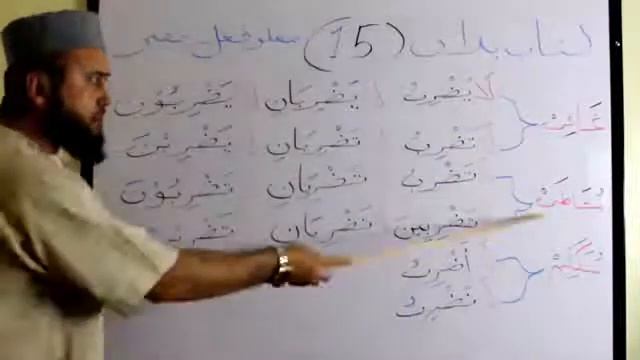 كتاب بدان (15) معلم فعل مضارع
غَائِبْ لَا يَضْرِبُ يَضْرِبَانِ يَضْرِبُوْنَ
تَضْرِبُ تَضْرِبَانِ يَضْرِبْنَ
مُخَاطَبْ تَضْرِبُ تَضْرِبَانِ تَضْرِبُوْنَ
تَضْرِبِيْنَ تَضْرِبَانِ
مُتَكَلِّمْ أَضْرِبُ
نَضْرِبُ